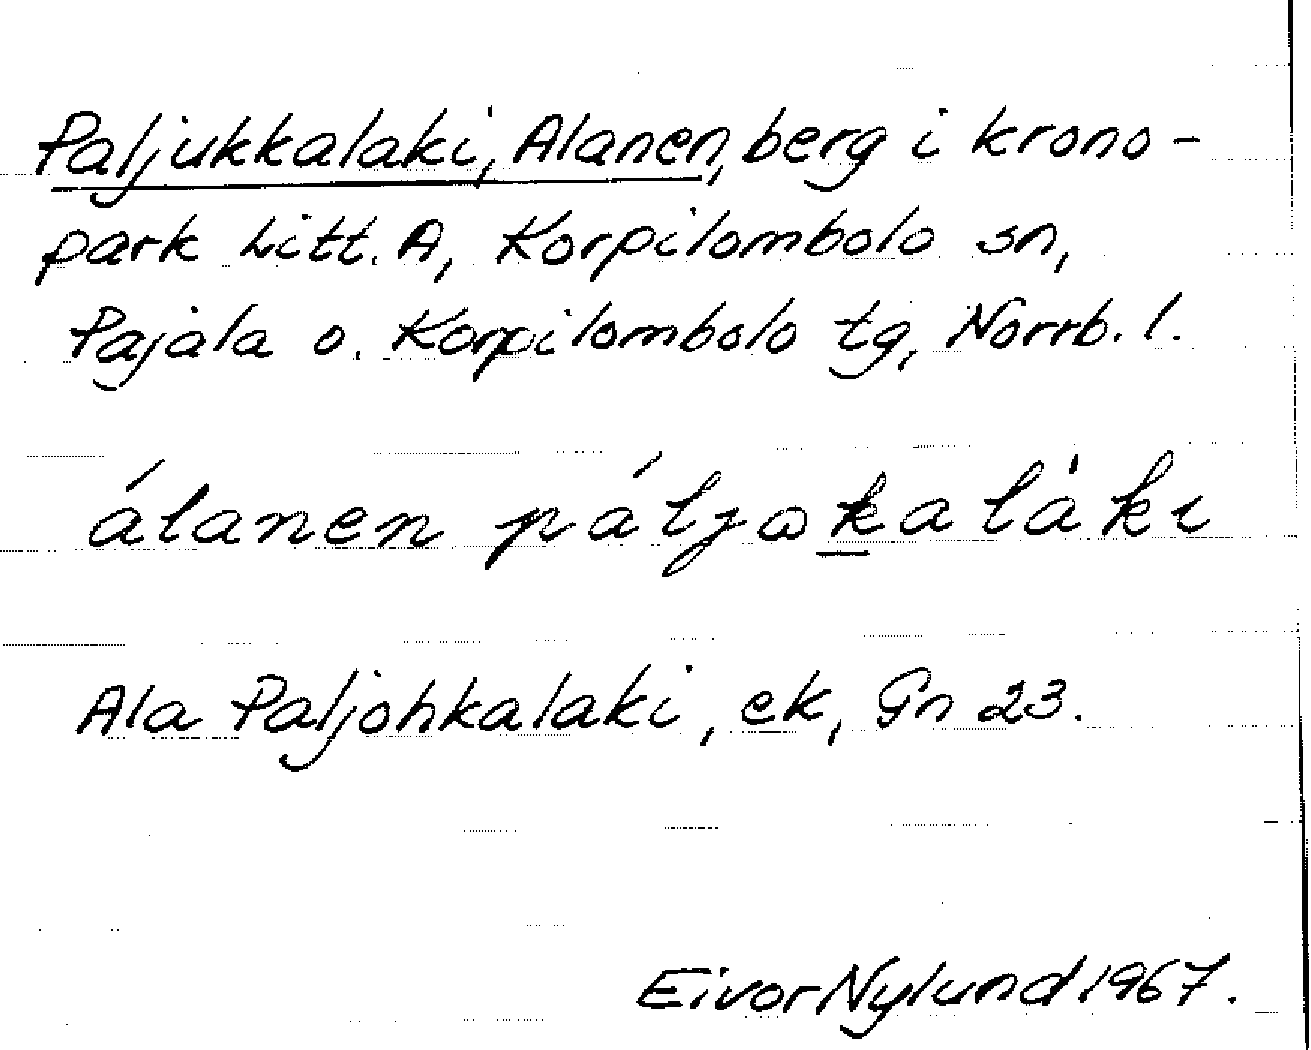 Paljukkalaki, Alanen, berg i krono-
park Litt. A, Korpilombolo sn,
Pajala o. Korpilombolo tg, Norrb. l.
álanen páljωkalàkɩ
Ala Paljohkalaki, ek, Gn 23.
Eivor Nylund 1967.